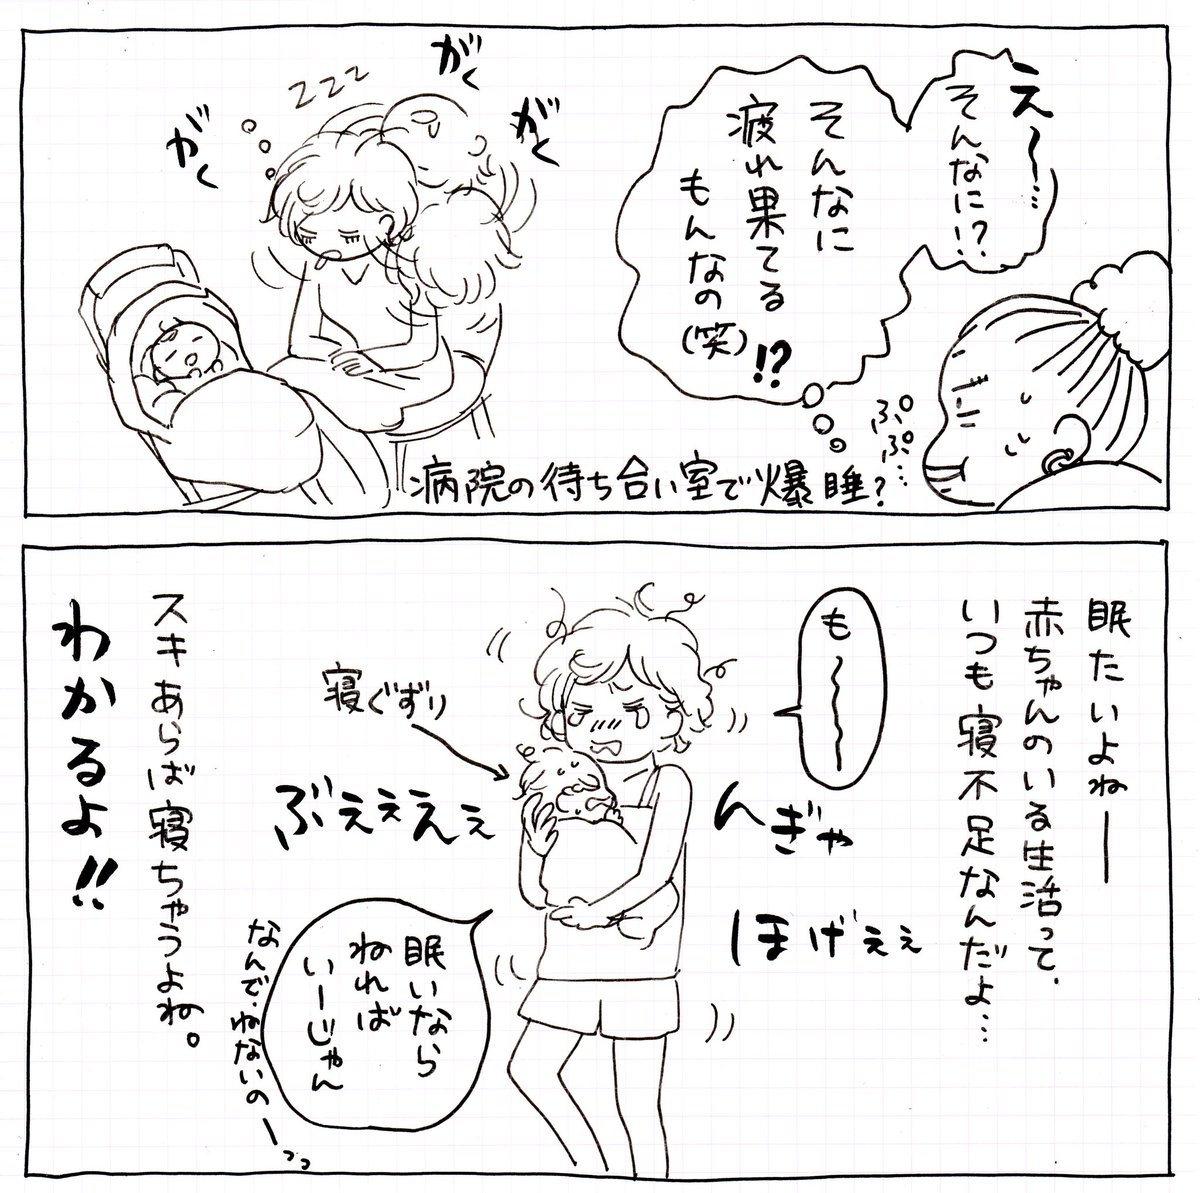 え〜…
そんなに!?
そんなに
疲れ果てる
もんなの
(笑)!?
ぷぷ…
がく
がく
zzz
がく
病院の待ち合い室で爆睡?
眠たいよねー
赤ちゃんのいる生活って、
いつも寝不足なんだよ…
も〜〜〜
んぎゃ
ほげぇぇ
寝ぐずり
ぶぇぇぇぇ
眠いなら
ねれば
いーじゃん
なんで・ねないのーっっ
スキあらば寝ちゃうよね。
わかるよ!!